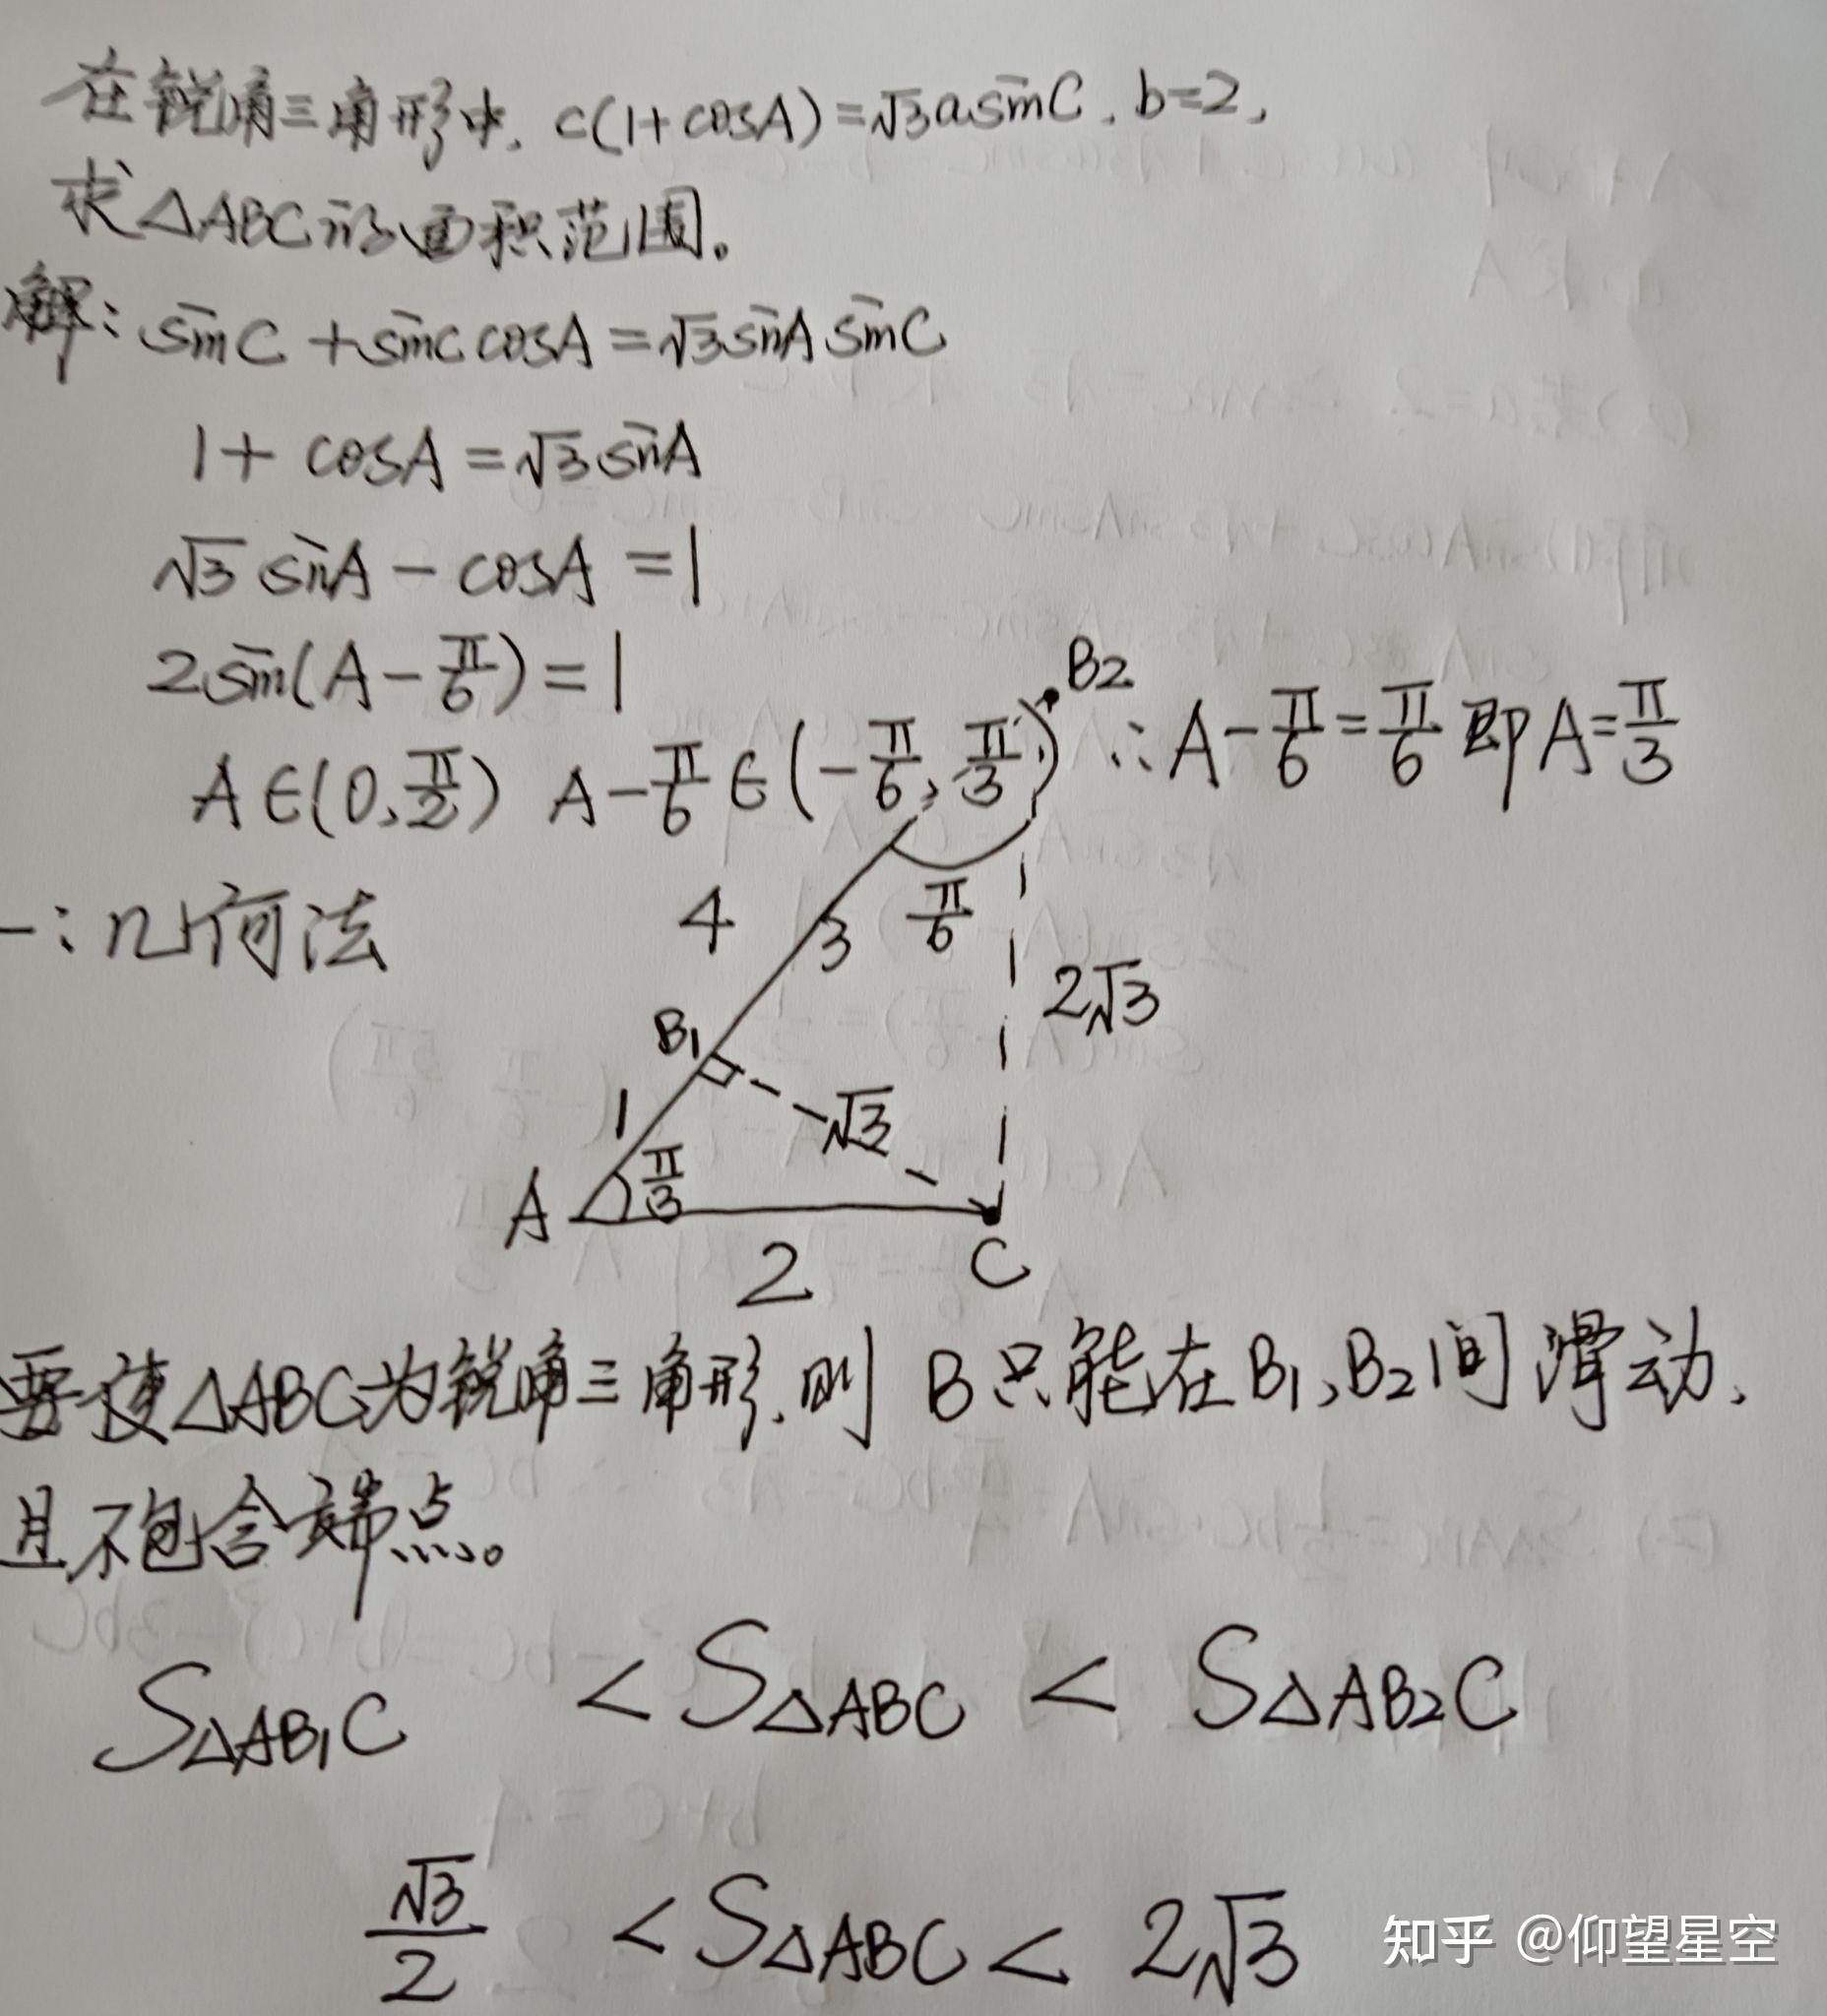 在锐角三角形中, c(1+cosA)=√3asinC, b=2,
求△ABC的面积范围。
解: sinC+sinCcosA=√3sinAsinC
1+cosA=√3sinA
√3sinA-cosA=1
2sin(A-π/6)=1
A∈(0,π/2) A-π/6∈(-π/6,π/3) ∴A-π/6=π/6即A=π/3
B2
一:几何法
4
3
π/6
2√3
B1
1
√3
π/3
A
2
C
要使△ABC为锐角三角形,则B只能在B1,B2间滑动,
且不包含端点。
S△AB1C < S△ABC < S△AB2C
√3/2 < S△ABC < 2√3
知乎 @仰望星空